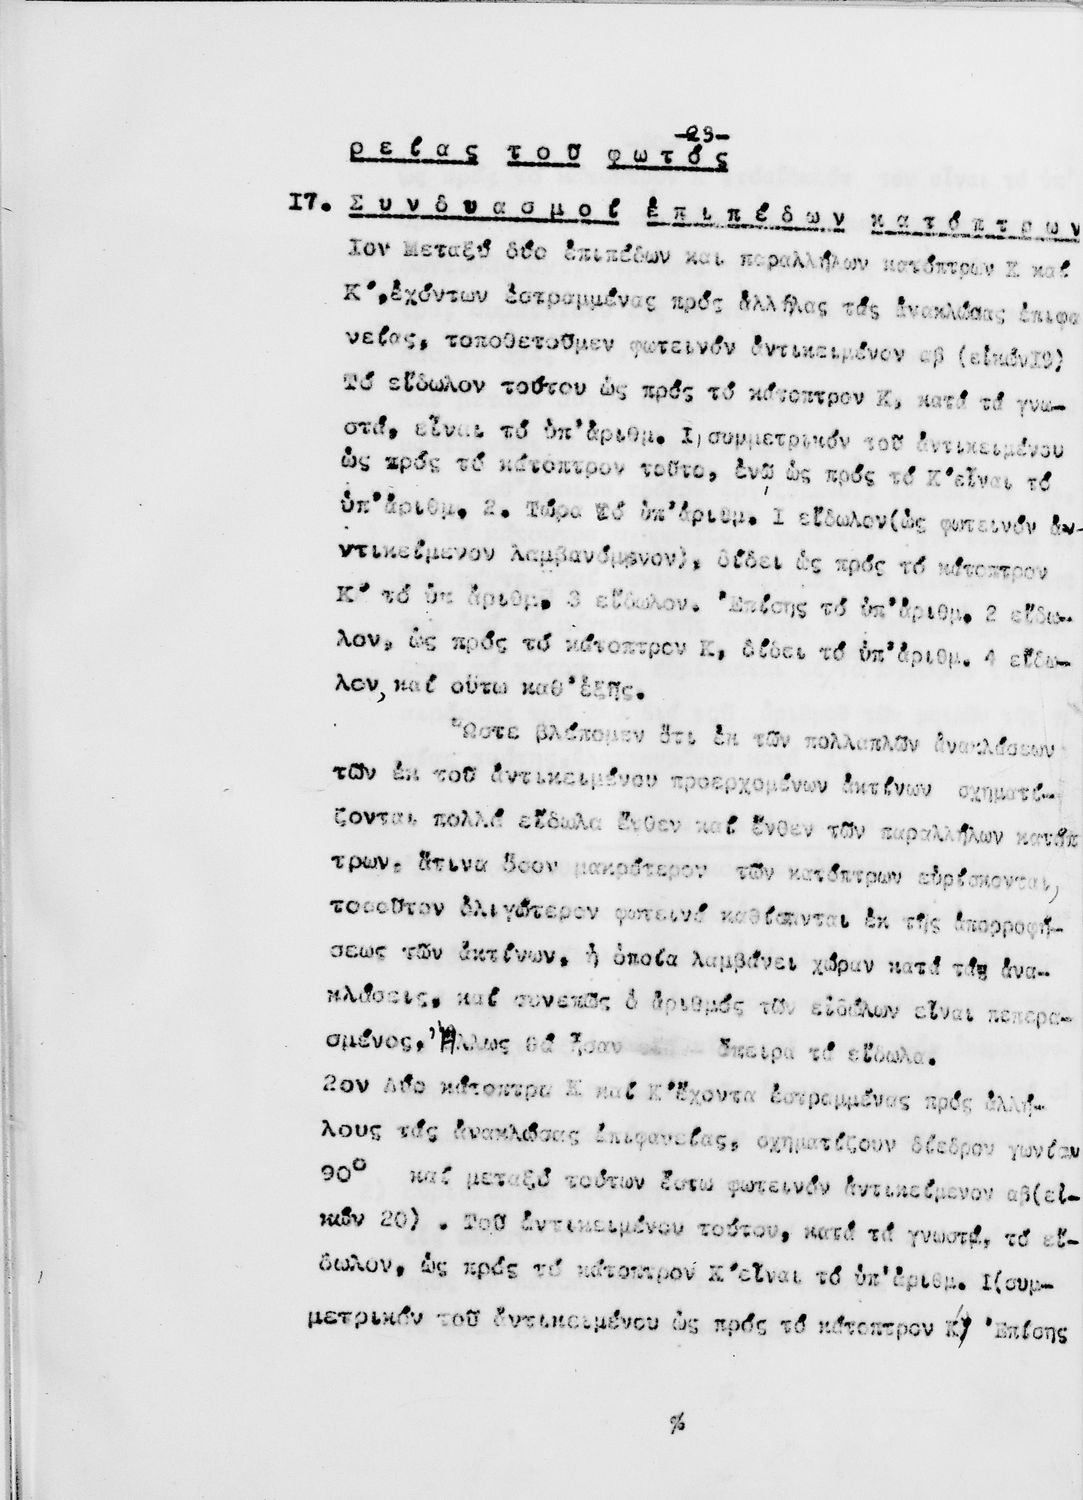 -29-
ρείας τοῦ φωτός
I7. Συνδυασμοί ἐπιπέδων κατόπτρων
Ιον Μεταξύ δύο ἐπιπέδων και παραλλήλων κατόπτρων Κ καί
Κ',ἐχόντων ἐστραμμένας πρός ἀλλήλας τάς ἀνακλώσας ἐπιφα
νείας, τοποθετοῦμεν φωτεινόν ἀντικειμένον αβ (εἰκών19)
Τό εἴδωλον τούτου ὡς πρός τό κάτοπτρον Κ, κατά τά γνω-
στά, εἶναι τό ὑπ'ἀριθμ. Ι, συμμετρικόν τοῦ ἀντικειμένου
ὡς πρός τό κάτοπτρον τοῦτο, ἐνῶ ὡς πρός τό Κ'εἶναι τό
ὑπ'ἀριθμ. 2. Τώρα τό ὑπ'ἀριθμ. Ι εἴδωλον(ὡς φωτεινόν ἀν-
ντικείμενον λαμβανόμενον), δίδει ὡς πρός τό κάτοπτρον
Κ' τό ὑπ ἀριθμ. 3 εἴδωλον. 'Επίσης τό ὑπ'ἀριθμ. 2 εἴδω-
λον, ὡς πρός τό κάτοπτρον Κ, δίδει τό ὑπ'ἀριθμ. 4 εἴδω-
λον, καί οὕτω καθ'ἑξῆς.
Ὥστε βλέπομεν ὅτι ἐκ τῶν πολλαπλῶν ἀνακλάσεων
τῶν ἐκ τοῦ ἀντικειμένου προερχομένων ἀκτίνων σχηματί-
ζονται πολλά εἴδωλα ἔνθεν καί ἔνθεν τῶν παραλλήλων κατόπ
τρων, ἅτινα ὅσον μακρότερον τῶν κατόπτρων εὑρίσκονται,
τοσοῦτον ὀλιγώτερον φωτεινά καθίστανται ἐκ τῆς ἀπορροφή-
σεως τῶν ἀκτίνων, ἡ ὁποία λαμβάνει χώραν κατά τάς ἀνα-
κλάσεις, καί συνεπῶς ὁ ἀριθμός τῶν εἰδώλων εἶναι πεπερα-
σμένος, Ἄλλως θά ἦσαν ἄπειρα τά εἴδωλα.
2ον Δύο κάτοπτρα Κ καί Κ'ἔχοντα ἐστραμμένας πρός ἀλλή-
λους τάς ἀνακλώσας ἐπιφανείας, σχηματίζουν δίεδρον γωνίαν
90° καί μεταξύ τούτων ἔστω φωτεινόν ἀντικείμενον αβ(εἰ-
κών 20) . Τοῦ ἀντικειμένου τούτου, κατά τά γνωστά, τό εἴ-
δωλον, ὡς πρός τό κάτοπτρον Κ'εἶναι τό ὑπ'ἀριθμ. Ι(συμ-
μετρικόν τοῦ ἀντικειμένου ὡς πρός τό κάτοπτρον Κ') 'Επίσης
%